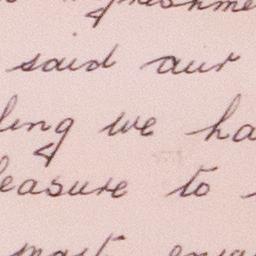 freshme
said our
ling we ha
leasure to
most enjo